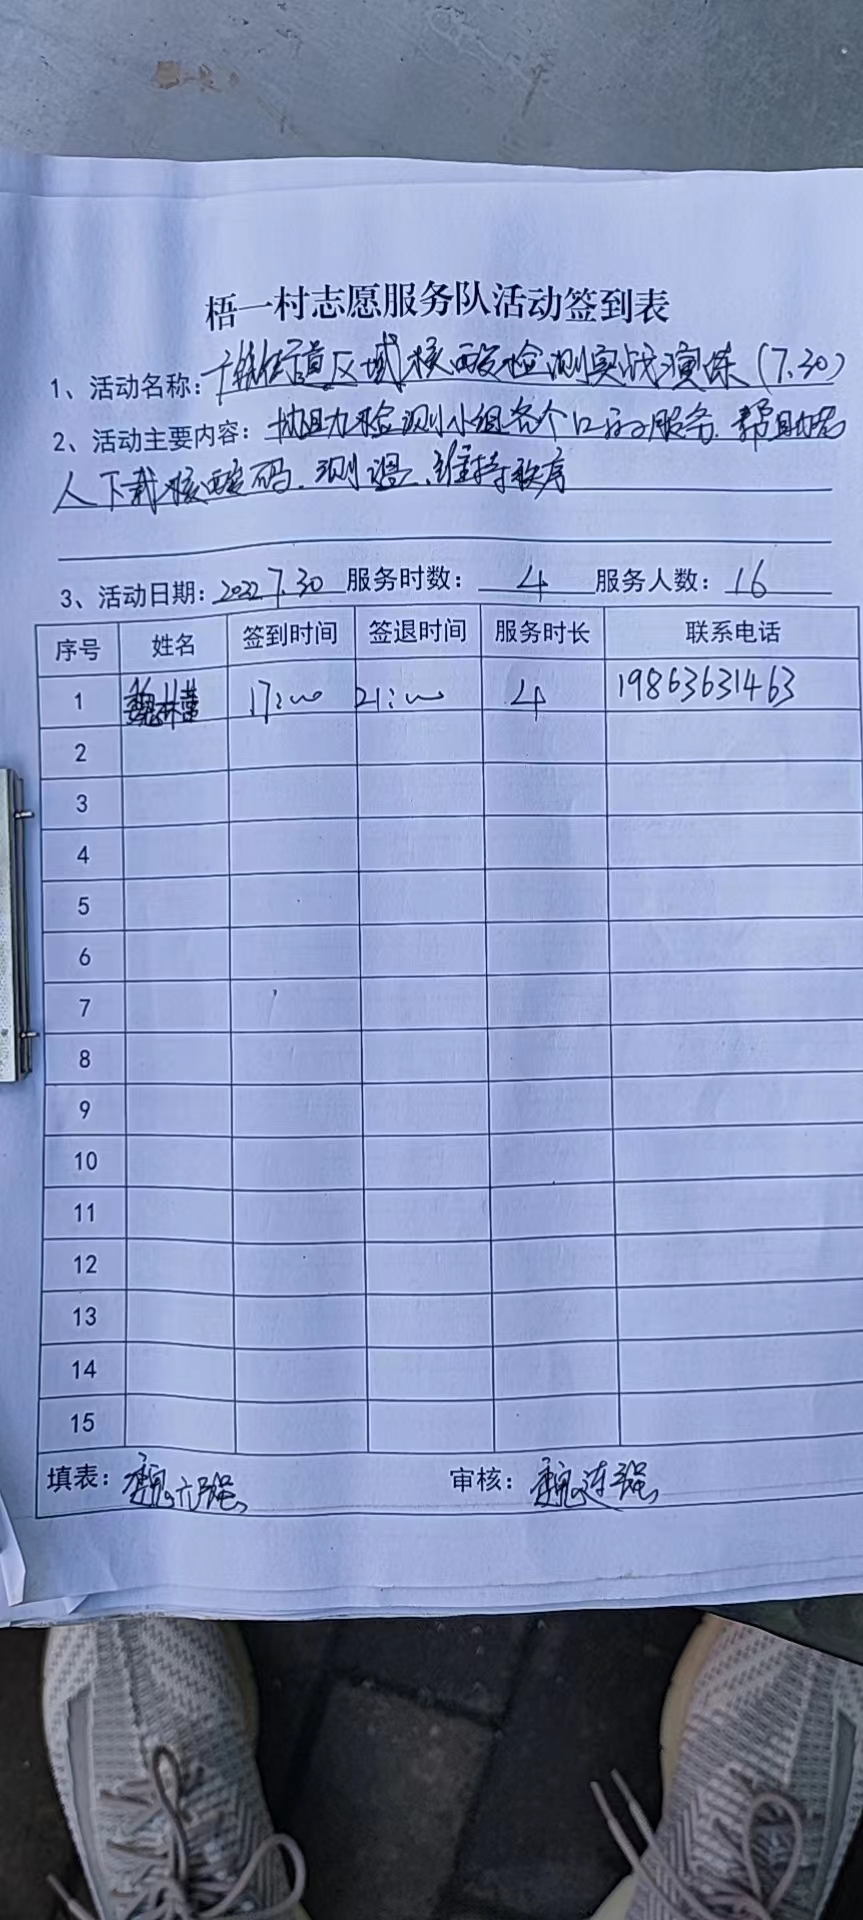 梧一村志愿服务队活动签到表
1、活动名称：街道区域核酸检测实战演练(7.30)
2、活动主要内容：协助检测小组各个口的服务.帮助老
人下载核酸码.测温、维持秩序
3、活动日期：2022 7.30 服务时数：4 服务人数：16
序号 姓名 签到时间 签退时间 服务时长 联系电话
1 魏 17:00 21:00 4 19863631463
2
3
4
5
6
7
8
9
10
11
12
13
14
15
填表：魏 强 审核：魏连强